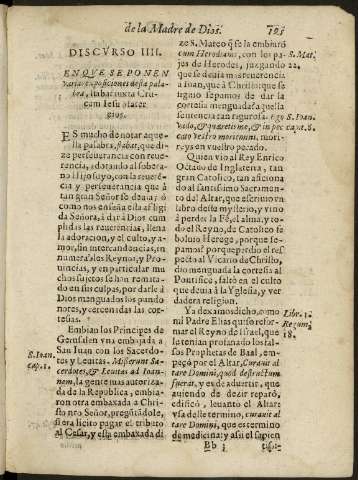 de la Madre de Dios.
191
DISCVRSO IIII.
EN QVE SE PONEN
varias exposiciones desta pala-
bra, stabat iuxta Cru-
cem Iesu Mater
eius.
ES mucho de notar aque-
lla palabra, stabat, que di-
ze perseuerancia con reue-
rencia, adorando al sobera-
no Hijo suyo, con la reueré
cia y perseuerancia que à
tan gran Señor se deuia; ò
como nos enseña esta afligi
da Señora, à dar à Dios cum
plidas las reuerencias, llena
la adoracion, y el culto, y a-
mor, sin intercandencias, in
numerables Reynos, y Pro-
uincias, y en particular mu
chos sujetos se han remata-
do en sus culpas, por darle à
Dios menguados los pundo
nores, y cercenidas las cor-
tesias.
Embian los Principes de
S. Ioan.
cap. 1.
Gerusalen vna embaxada à
San Iuan con los Sacerdo-
tes y Leuitas. Miserunt Sa-
cerdotes, & Leuitas ad Ioan-
nem, la gente mas autoriza-
da de la Republica, embia-
ron otra embaxada à Chri-
sto nro Señor, preguntádole,
si era licito pagar el tributo
al Cesar, y esta embaxada di
ze S. Mateo q̃ se la embiaró
cum Herodianis, con los pa-
S. Mat.
22.
jes de Herodes, juzgando
que se deuia mas reuerencia
a Iuan, que à Christo: que se
siguio? tomemos de dar la
cortesia menguada? aquella
sentencia tan rigurosa. Ego
S. Ioan.
8.
vado, & quaeretis me, & in pec
cato vestro moriemini, mori-
reys en vuestro pecado.
Quien vio al Rey Enrico
Octauo de Inglaterra, tan
gran Catolico, tan aficiona
do al santissimo Sacramen-
to del Altar, que escriuio vn
libro deste mysterio, y vino
à perder la Fè, el alma, y to-
do el Reyno, de Catolico se
boluio Herege, porque se-
pamos? porque perdio el res
pecto al Vicario de Christo,
dio menguada la cortesia al
Pontifice, faltò en el culto
que deuia à la Yglesia, y ver
dadera religion.
Ya dexamos dicho, como
Lib. 3.
Regum
18.
mi Padre Elias quiso refor-
mar el Reyno de Israel, que
le tenian profanado los fal-
sos Prophetas de Baal, em-
peçò por el Altar, Curauit al
tare Domini, quod destructum
fuerat, y es de aduertir, que
auiendo de dezir reparò,
edificò, leuantò el Altar
vsa deste termino, curauit al
tare Domini, que es termino
de medicina; y assi el sapien
Bb j